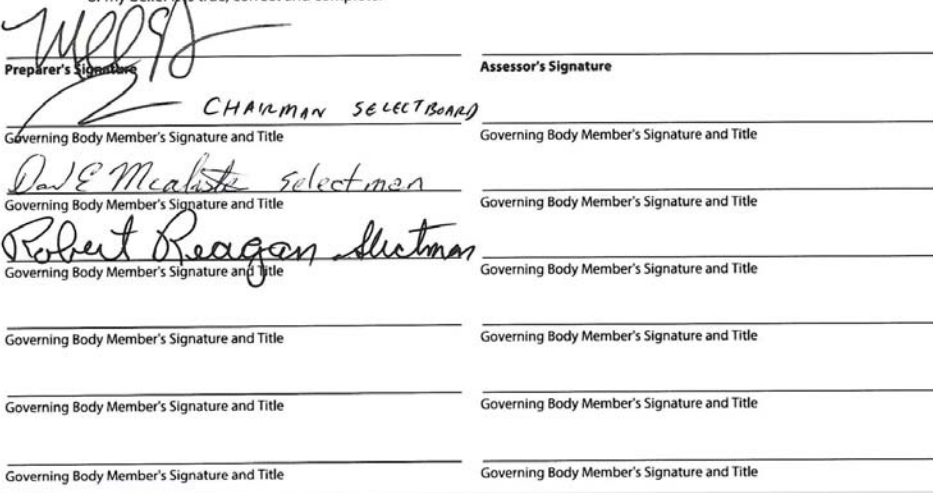 of my belief it is true, correct and complete.
Preparer's Signature
Assessor's Signature
CHAIRMAN SELECTBOARD
Governing Body Member's Signature and Title
Governing Body Member's Signature and Title
Selectman
Governing Body Member's Signature and Title
Governing Body Member's Signature and Title
Robert Reagan Selectman
Governing Body Member's Signature and Title
Governing Body Member's Signature and Title
Governing Body Member's Signature and Title
Governing Body Member's Signature and Title
Governing Body Member's Signature and Title
Governing Body Member's Signature and Title
Governing Body Member's Signature and Title
Governing Body Member's Signature and Title